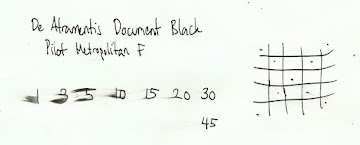 De Atramentis Document Black
Pilot Metropolitan F
1 3 5 10 15 20 30
45